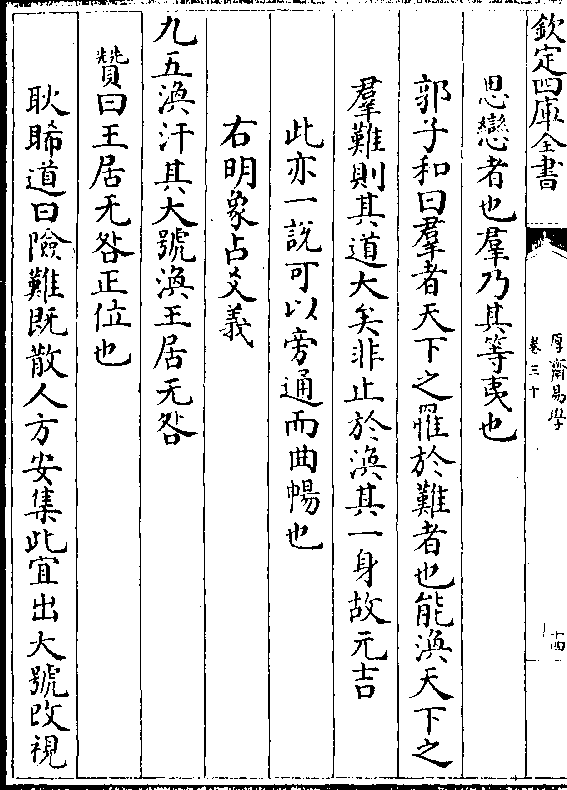 欽定四庫全書
厚齋易學
卷三十
十四
思戀者也羣乃其等夷也
郭子和曰羣者天下之罹於難者也能渙天下之
羣難則其道大矣非止於渙其一身故元吉
此亦一說可以旁通而曲暢也
右明象占爻義
九五渙汗其大號渙王居无咎
贊曰王居无咎正位也
耿睎道曰險難既散人方安集此宜出大號改視